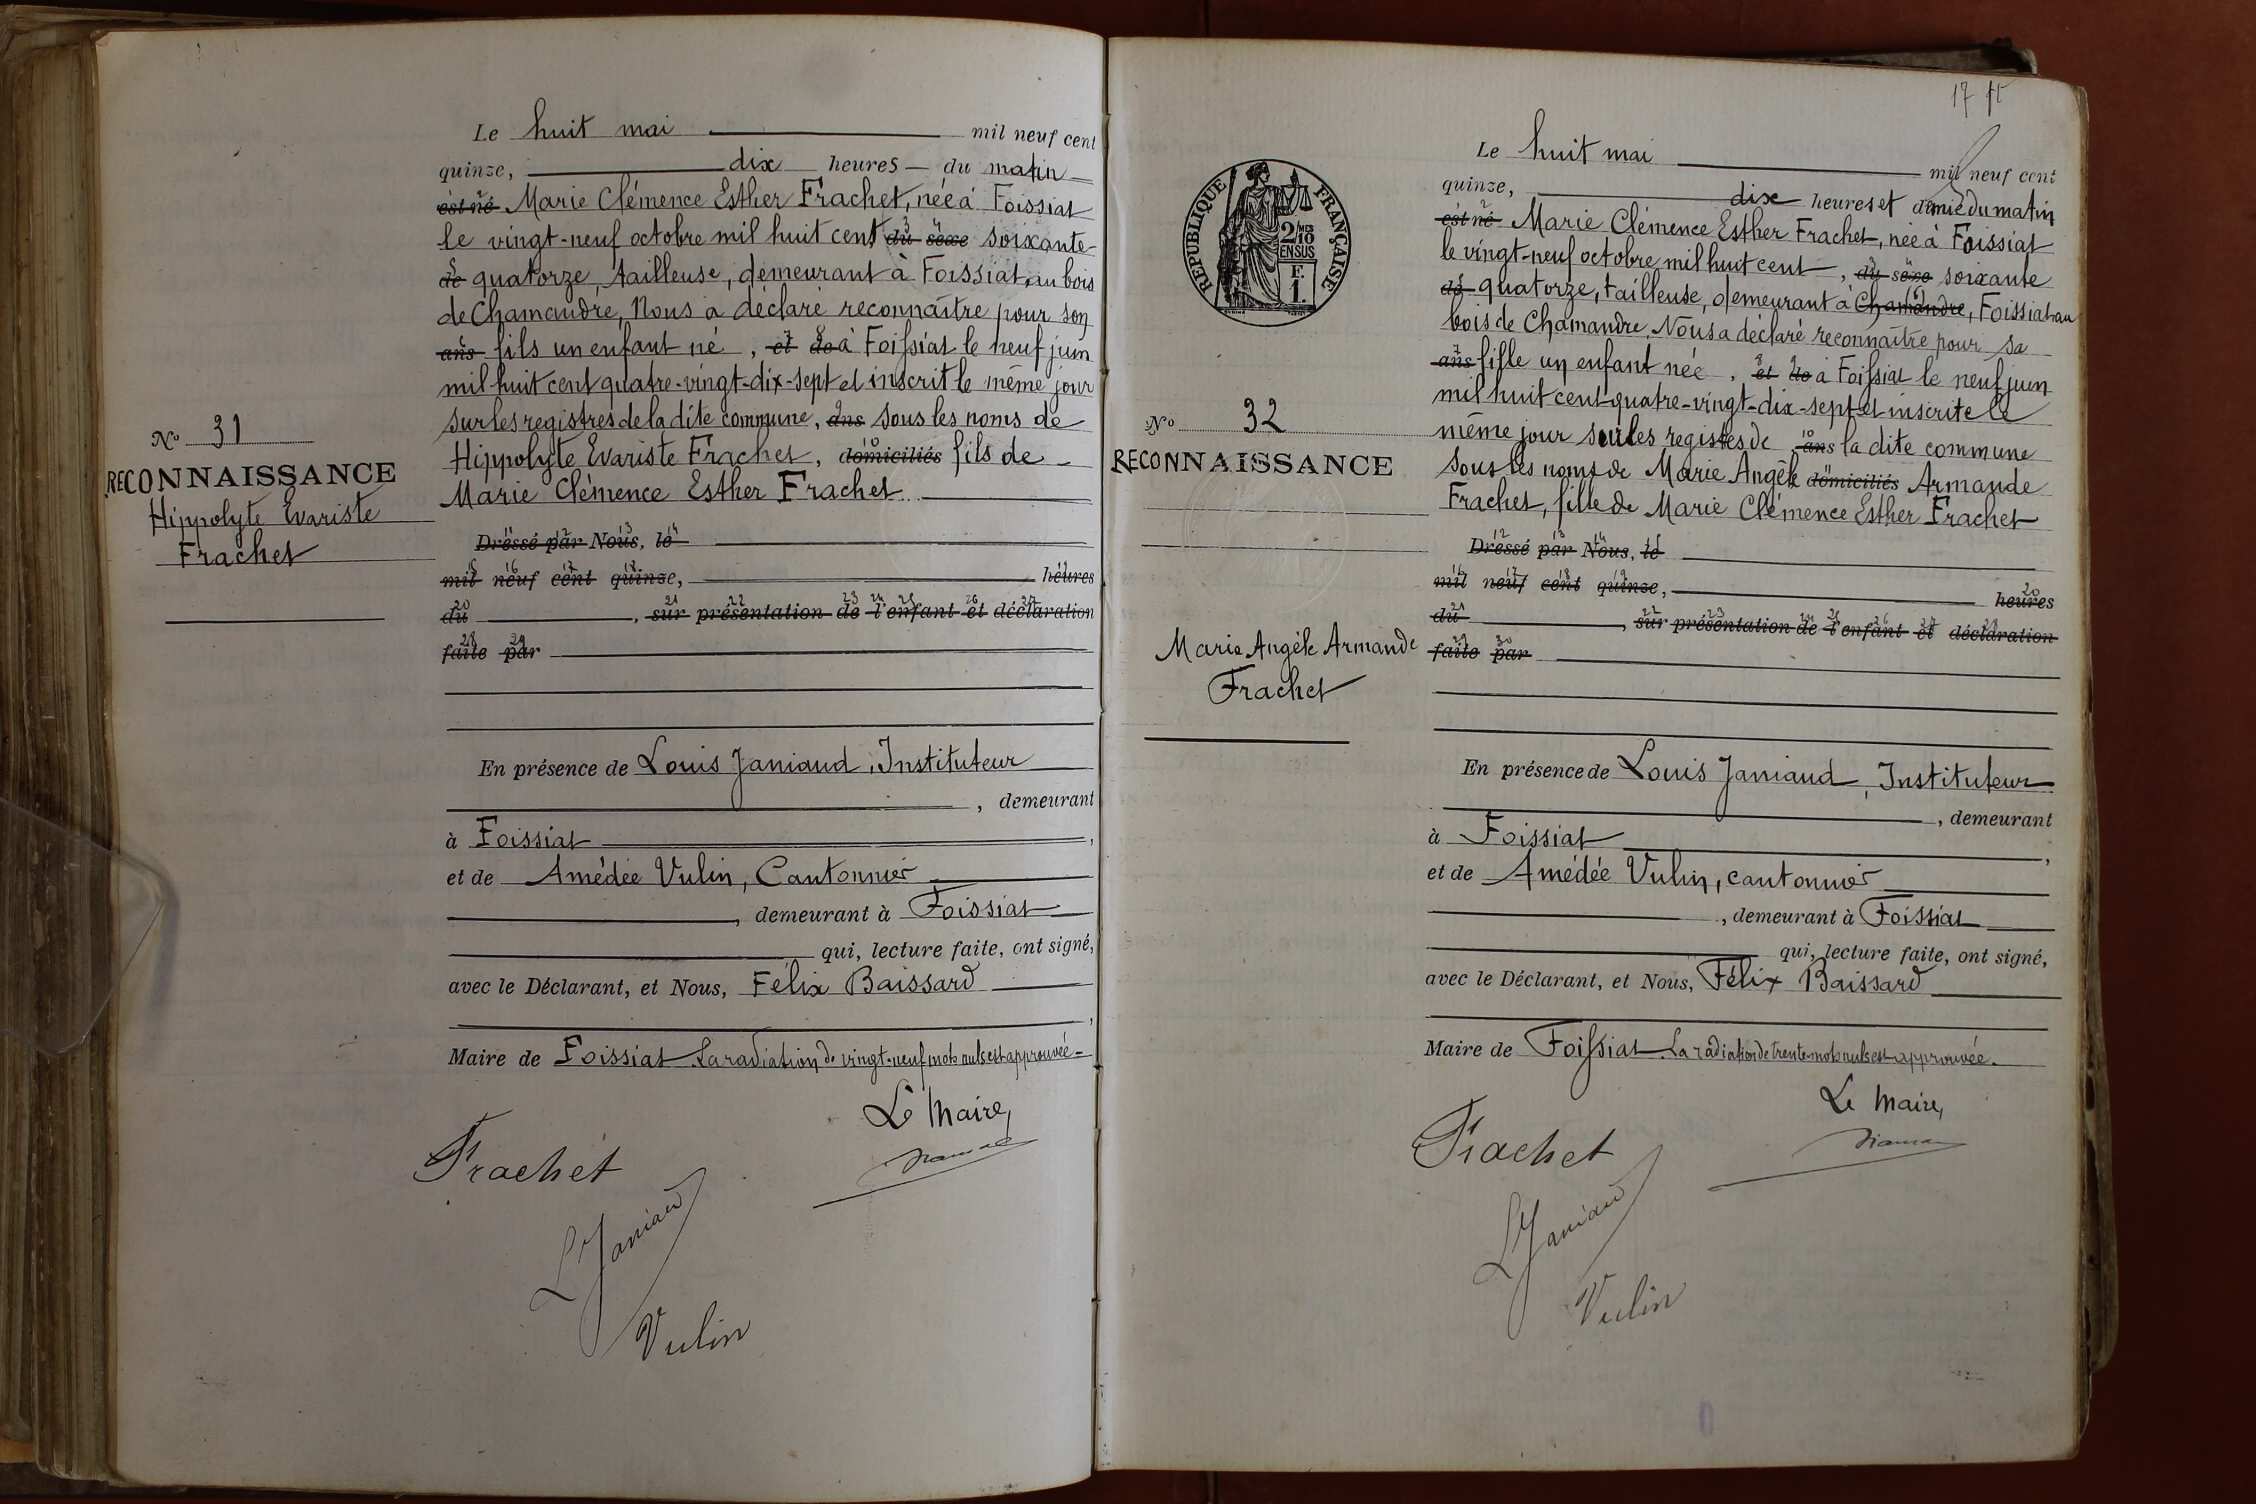 Le huit mai mil neuf cent
quinze, dix heures du matin
est né Marie Clémence Esther Frachet, née à Foissiat
le vingt-neuf octobre mil huit cent du sexe soixante-
de quatorze, tailleuse, demeurant à Foissiat, au bois
de Chamandre, Nous a déclaré reconnaître pour son
ans fils un enfant né, et de à Foissiat le neuf juin
mil huit cent quatre-vingt-dix-sept et inscrit le même jour
sur les registres de la dite commune, ans sous les noms de
Hippolyte Evariste Frachet, domiciliés fils de
Marie Clémence Esther Frachet
No 31
RECONNAISSANCE
Hippolyte Evariste
Frachet
Dressé par Nous, le
mil neuf cent quinze, heures
du , sur présentation de l'enfant et déclaration
faite par
En présence de Louis Janiaud, Instituteur
, demeurant
à Foissiat ,
et de Amédée Vulin, Cantonnier
, demeurant à Foissiat
qui, lecture faite, ont signé,
avec le Déclarant, et Nous, Félix Baissard
,
Maire de Foissiat La radiation de vingt-neuf mots nuls est approuvée-
Le Maire,
Frachet
L Janiaud
Vulin
17
REPUBLIQUE FRANÇAISE
2/10
EN SUS
F.
1.
Le huit mai mil neuf cent
quinze, dix heures et demie du matin
est né Marie Clémence Esther Frachet, née à Foissiat
le vingt-neuf octobre mil huit cent, du sexe soixante
de quatorze, tailleuse, demeurant à Chamandre, Foissiat au
bois de Chamandre, Nous a déclaré reconnaître pour sa
ans fille un enfant née, et de à Foissiat le neuf juin
mil huit cent quatre-vingt-dix-sept et inscrite le
même jour sur les registres de ans la dite commune
sous les noms de Marie Angèle domiciliés Armande
Frachet, fille de Marie Clémence Esther Frachet
No 32
RECONNAISSANCE
Marie Angèle Armande
Frachet
Dressé par Nous, le
mil neuf cent quinze, heures
du , sur présentation de l'enfant et déclaration
faite par
En présence de Louis Janiaud, Instituteur
, demeurant
à Foissiat ,
et de Amédée Vulin, cantonnier
, demeurant à Foissiat
qui, lecture faite, ont signé,
avec le Déclarant, et Nous, Félix Baissard
Maire de Foissiat La radiation de trente mots nuls est approuvée.
Le Maire,
Frachet
L Janiaud
Vulin